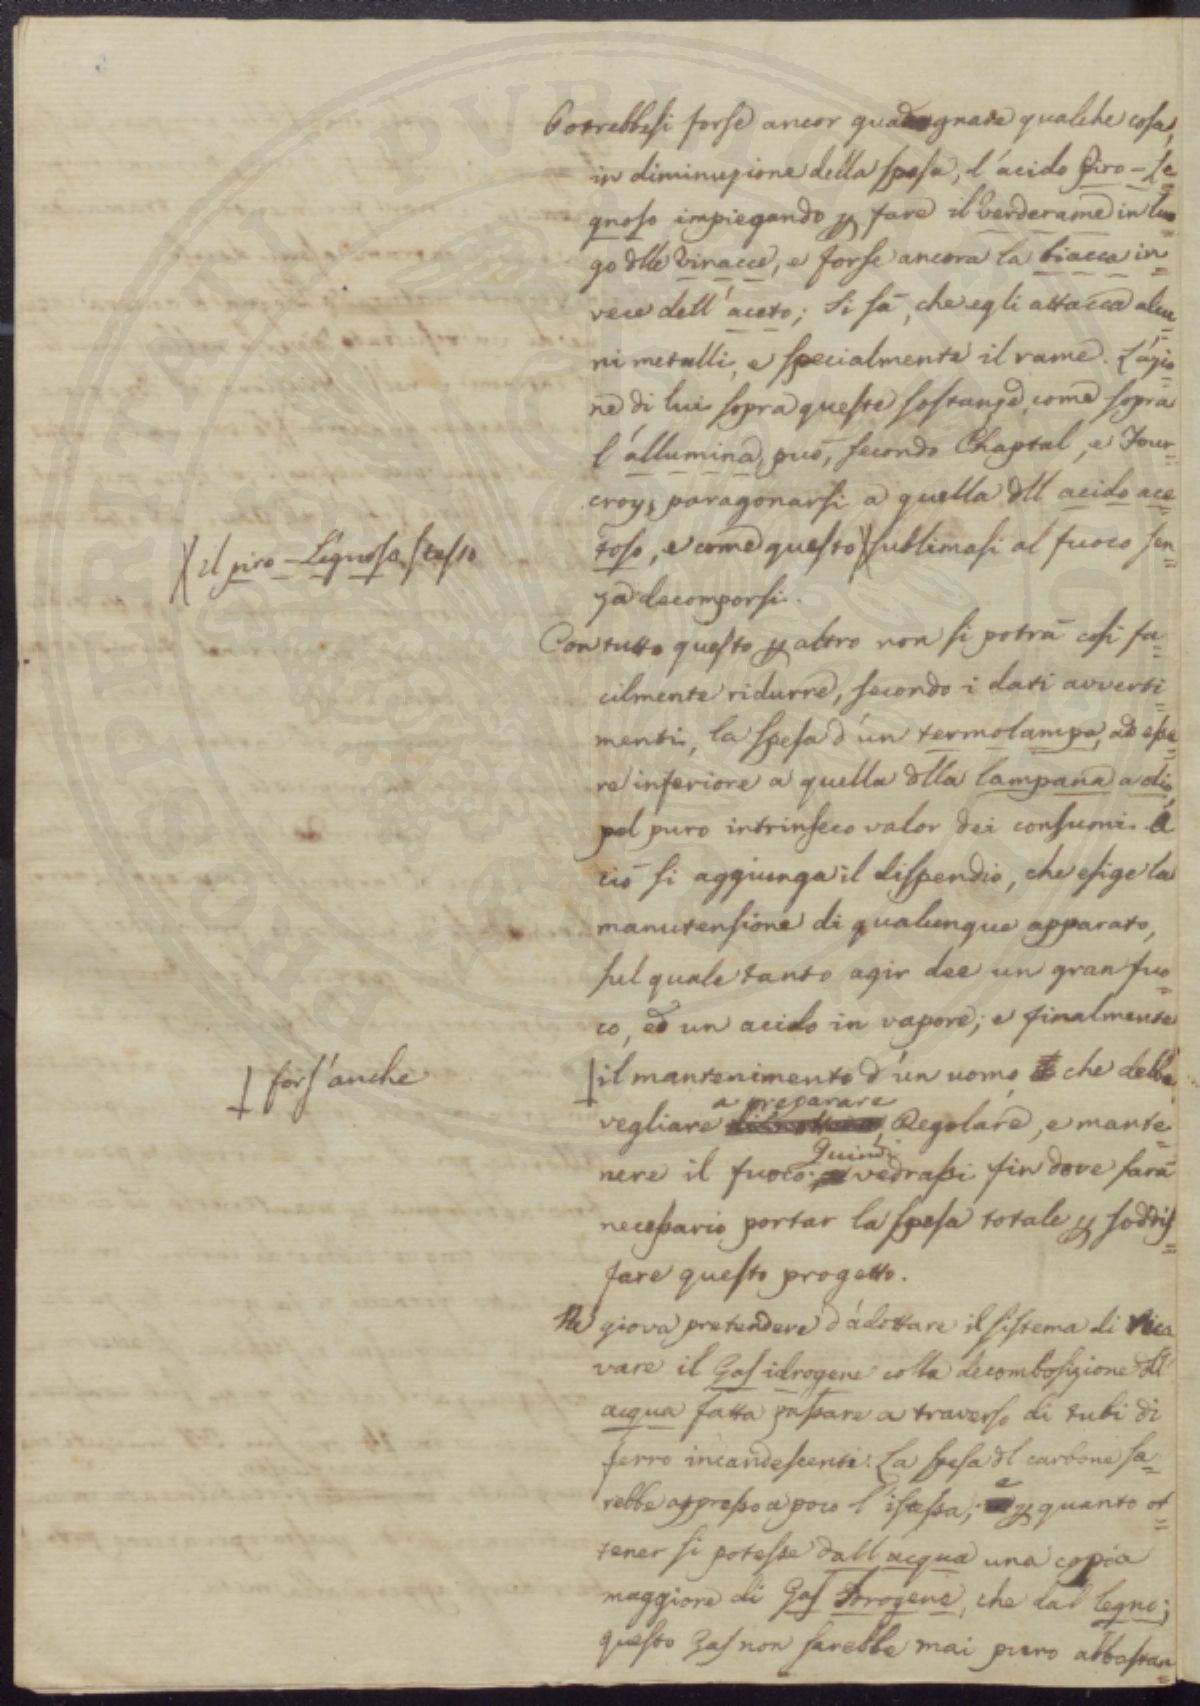 Potrebbesi forse ancor guadagnare qualche cosa,
in diminuzione della spesa, l'acido Piro-Le=
gnoso impiegando p fare il verderame in luo
go dlle vinacce, e forse ancora la biacca in=
vece dell'aceto; si sà, che egli attacca alcu=
ni metalli, e specialmente il rame. L'azio=
ne di lui sopra queste sostanze, come sopra
l'allumina, può, secondo Chaptal, e Four=
croy, paragonarsi a quella dll acido ace
toso, e come questo )( sublimasi al fuoco sen=
)( il piro-Lignoso stesso
za decomporsi.
Con tutto questo p altro non si potrà così fa=
cilmente ridurre, secondo i dati avverti=
menti, la spesa d'un termolampo, ad esse=
re inferiore a quella dlla lampana a olio
pel puro intrinseco valor dei consumi. A
ciò si aggiunga il dispendio, che esige la
manutensione di qualunque apparato,
sul quale tanto agir dee un gran fuo=
co, ed un acido in vapore; e finalmente
† fors'anche
† il mantenimento d'un uomo che debba
a preparare
vegliare Regolare, e mante=
Quindi
nere il fuoco: vedrassi fin dove sarà
necessario portar la spesa totale p soddis=
fare questo progetto.
Ne giova pretendere d'adottare il sistema di rica
vare il Gas idrogene colla decombosizione dll
acqua fatta passare a traverso di tubi di
ferro incandescenti: La spesa dl carbone sa=
rebbe appresso a poco l'istessa; e p quanto ot=
tener si potesse dall acqua una copia
maggiore di Gas Idrogene, che dal legno;
questo Gas non sarebbe mai puro abbastan=